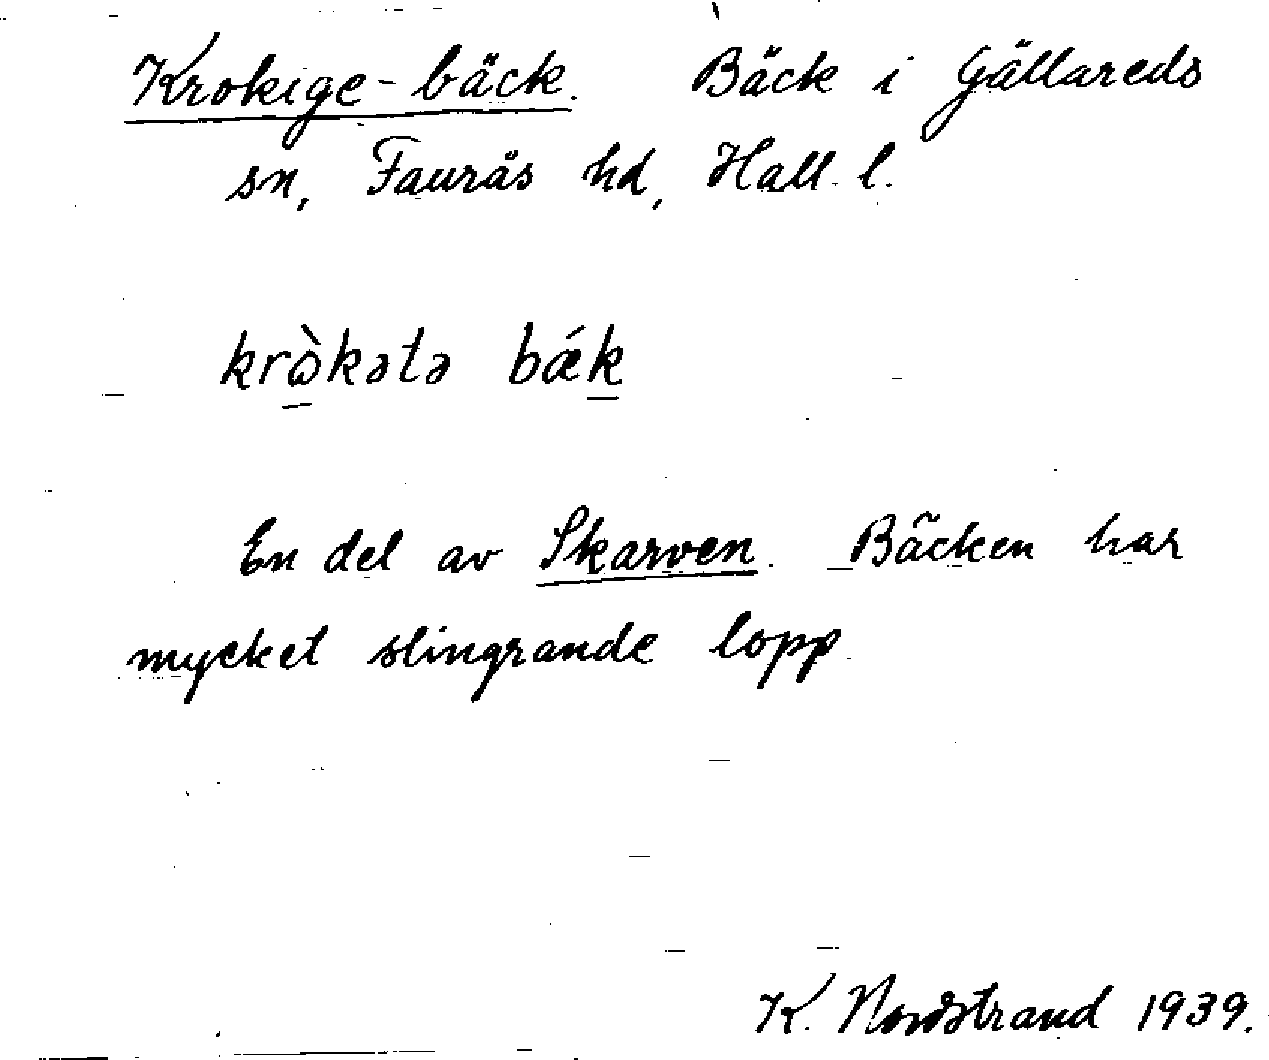 Krokige-bäck. Bäck i Gällareds
sn, Faurås hd, Hall. l.
krὼkətə bǽk
En del av Skarven. Bäcken har
mycket slingrande lopp.
K. Nordstrand 1939.